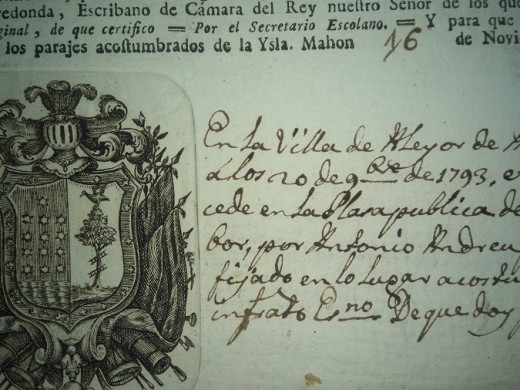 redonda, Escribano de Cámara del Rey nuestro Señor de los que
ginal, de que certifico = Por el Secretario Escolano. = Y para que
los parajes acostumbrados de la Ysla. Mahon 16 de Novi
En la Villa de Aleyor de
a los 20 de 9bre de 1793, e
cede en la Plasa publica de
bor, por Antonio Andreu
fijado en lo lugar acostu
infrado Esno. De que doy